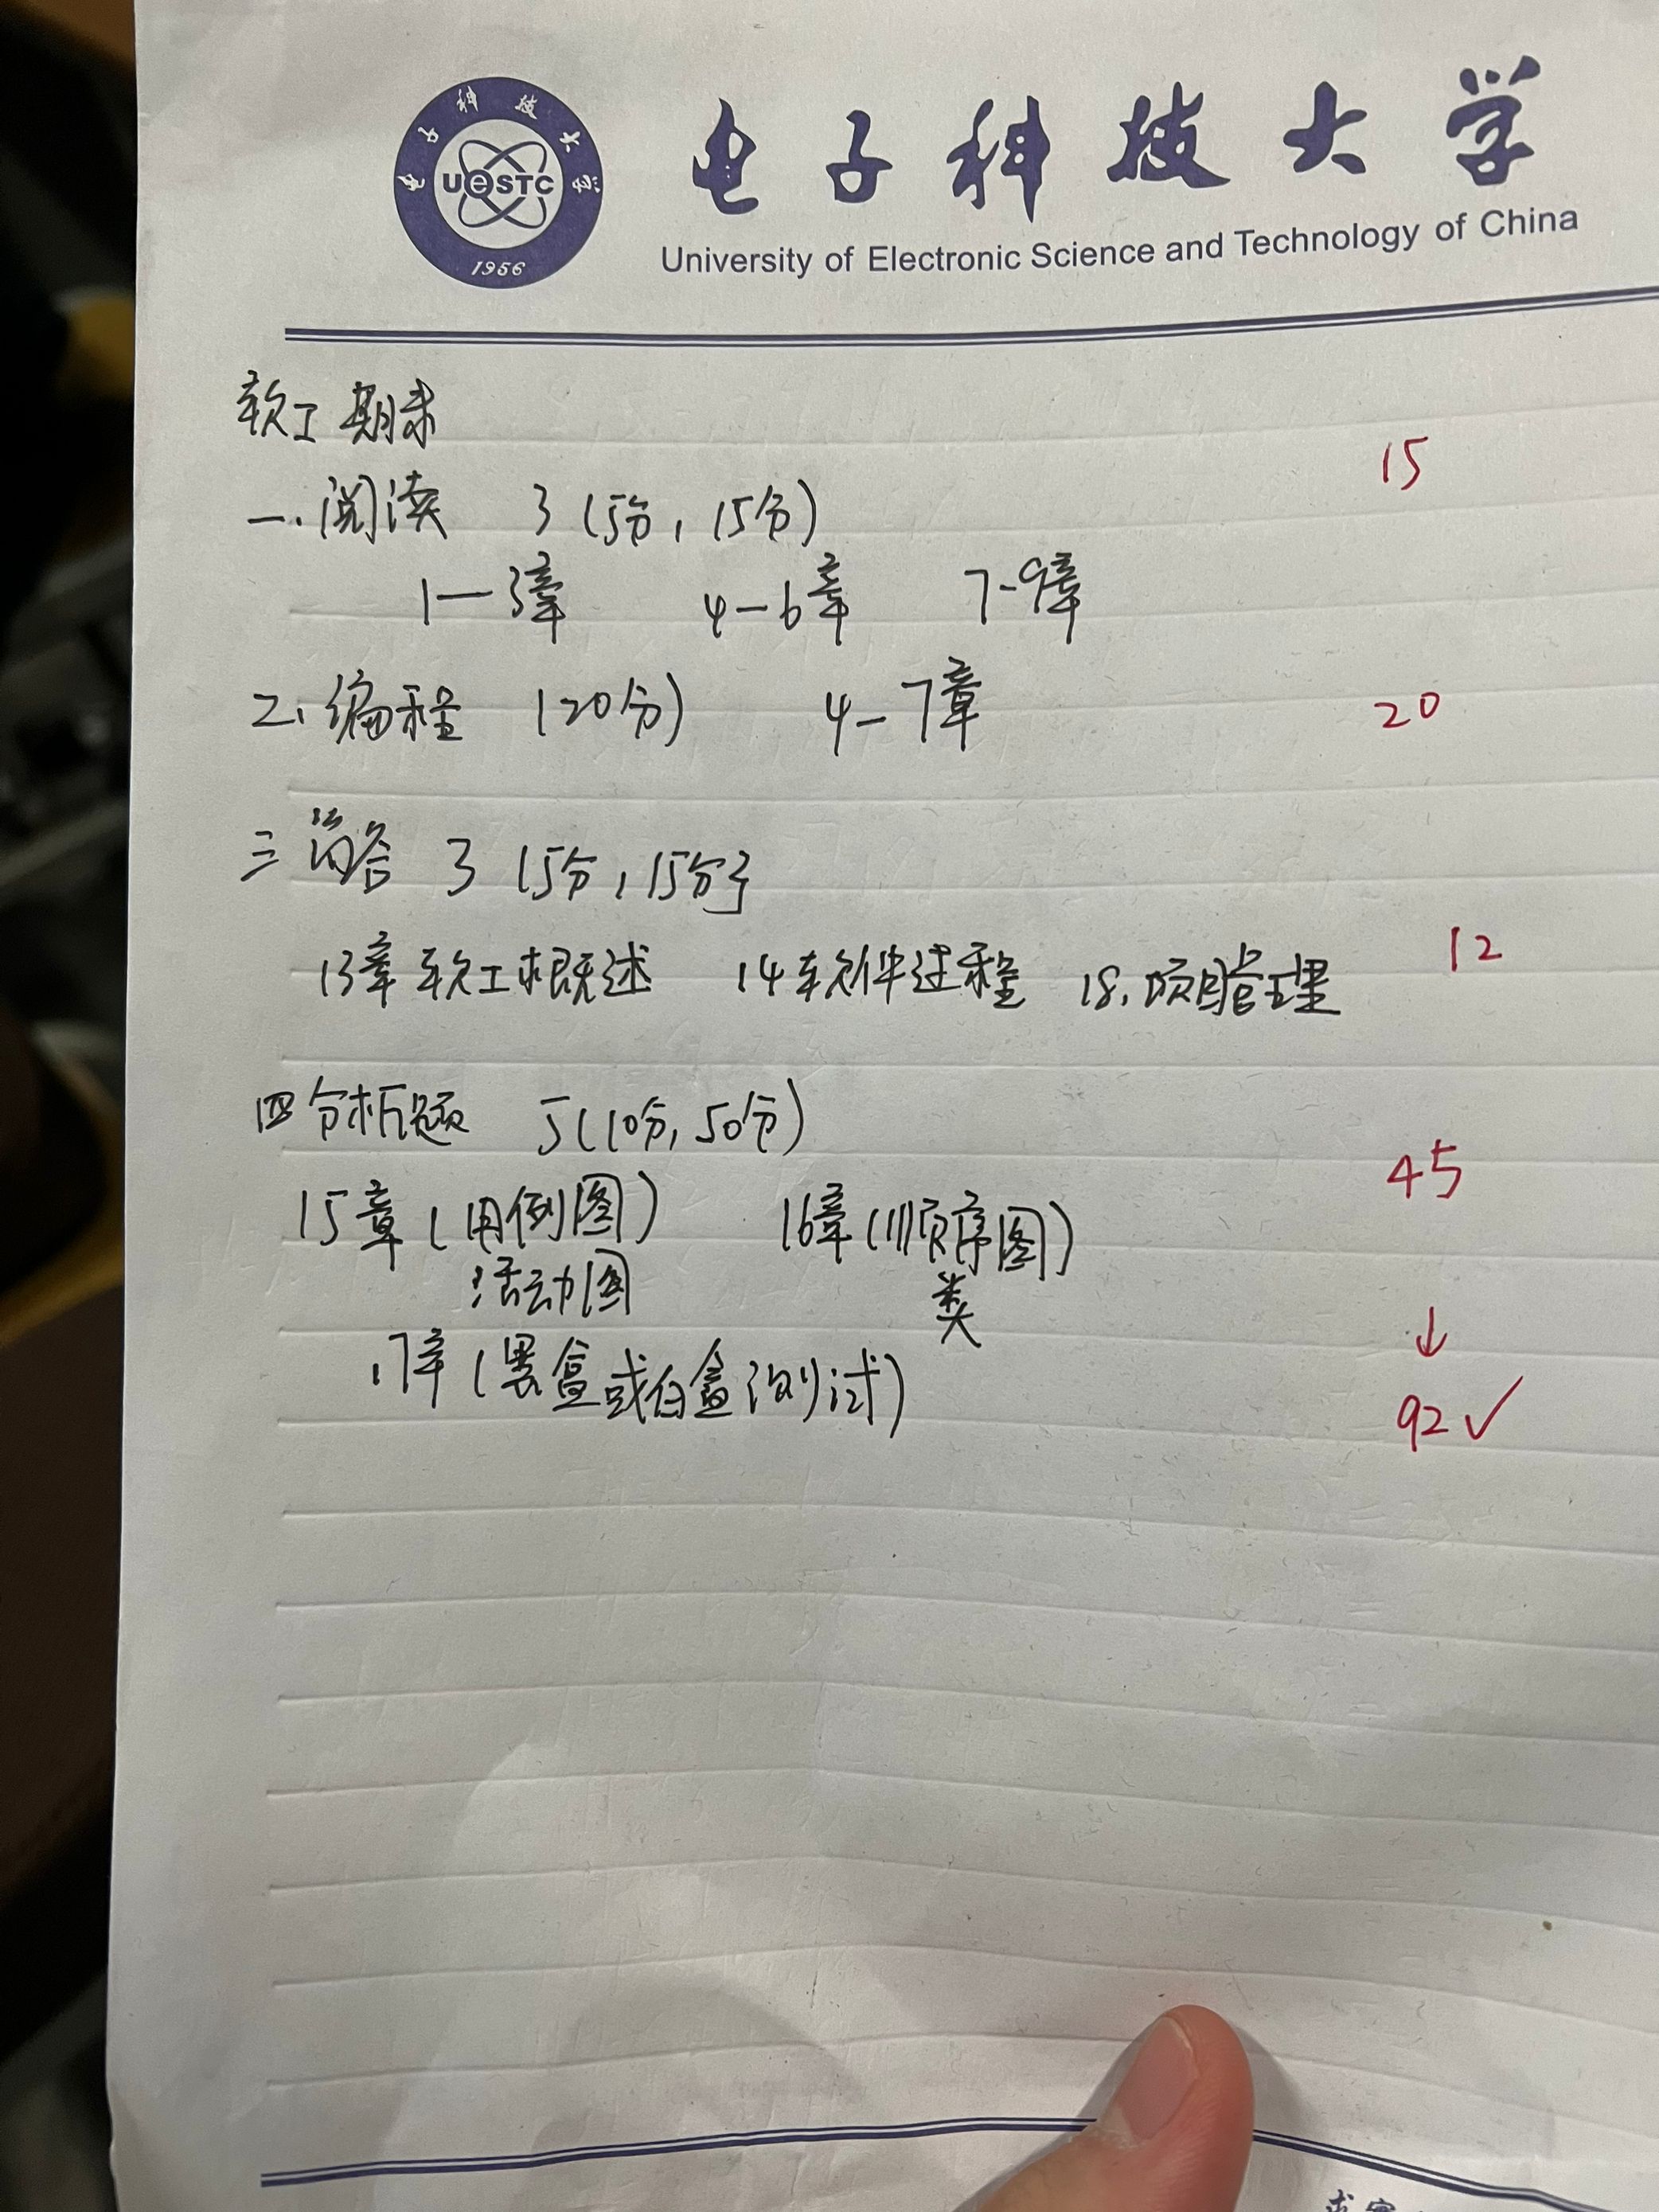 电子科技大学
UeSTC
1956
电子科技大学
University of Electronic Science and Technology of China
软工期末
15
一.阅读 3(5分,15分)
1—3章 4—6章 7-9章
二、编程 (20分) 4—7章
20
三 简答 3(5分,15分)
13章 软工概述 14软件过程 18.项目管理
12
四 分析题 5(10分,50分)
45
15章(用例图) 16章(顺序图)
活动图 类
17章(黑盒或白盒测试)
↓
92✓
求实